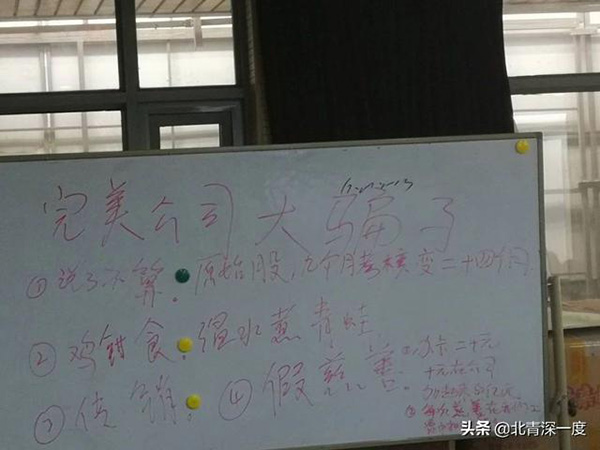 完美公司大骗子
①说了不算。原始股,六个月考核变二十四个月
②鸡钳食。温水煮青蛙
③传销。④假慈善。办卡二十元
十元在公司
头条 @北青深一度